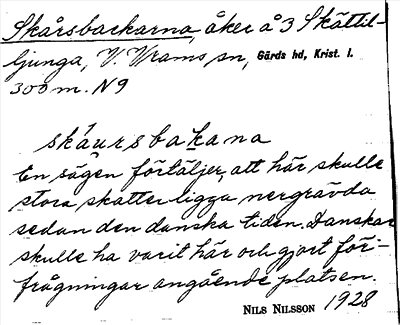 Skårsbackarna, åker å 3 Skättil-
ljunga, V. Vrams sn, Gärds hd, Krist. l.
300 m. N 9
skáursbakana
En sägen förtäljer, att här skulle
stora skatter ligga nergrävda
sedan den danska tiden. Danskar
skulle ha varit här och gjort för-
frågningar angående platsen.
NILS NILSSON 1928